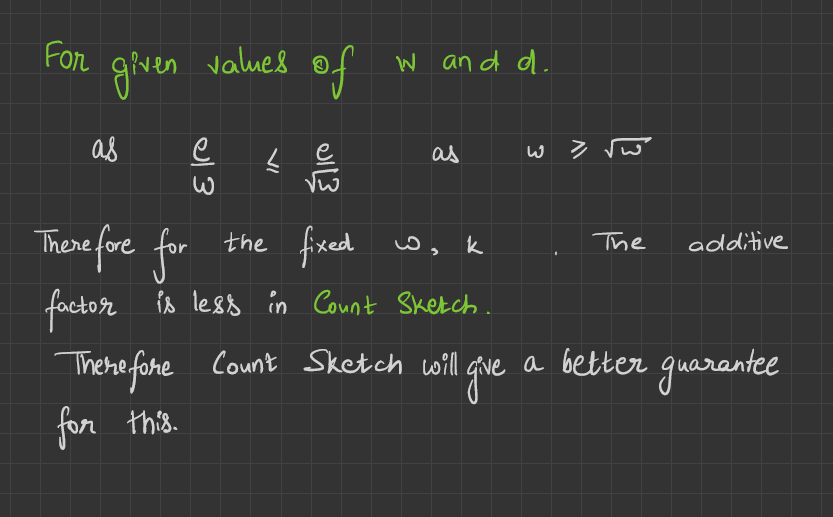 For given values of w and d.
as e/w ≤ e/√w as w ≥ √w
Therefore for the fixed w, k . The additive
factor is less in Count Sketch.
Therefore Count Sketch will give a better guarantee
for this.